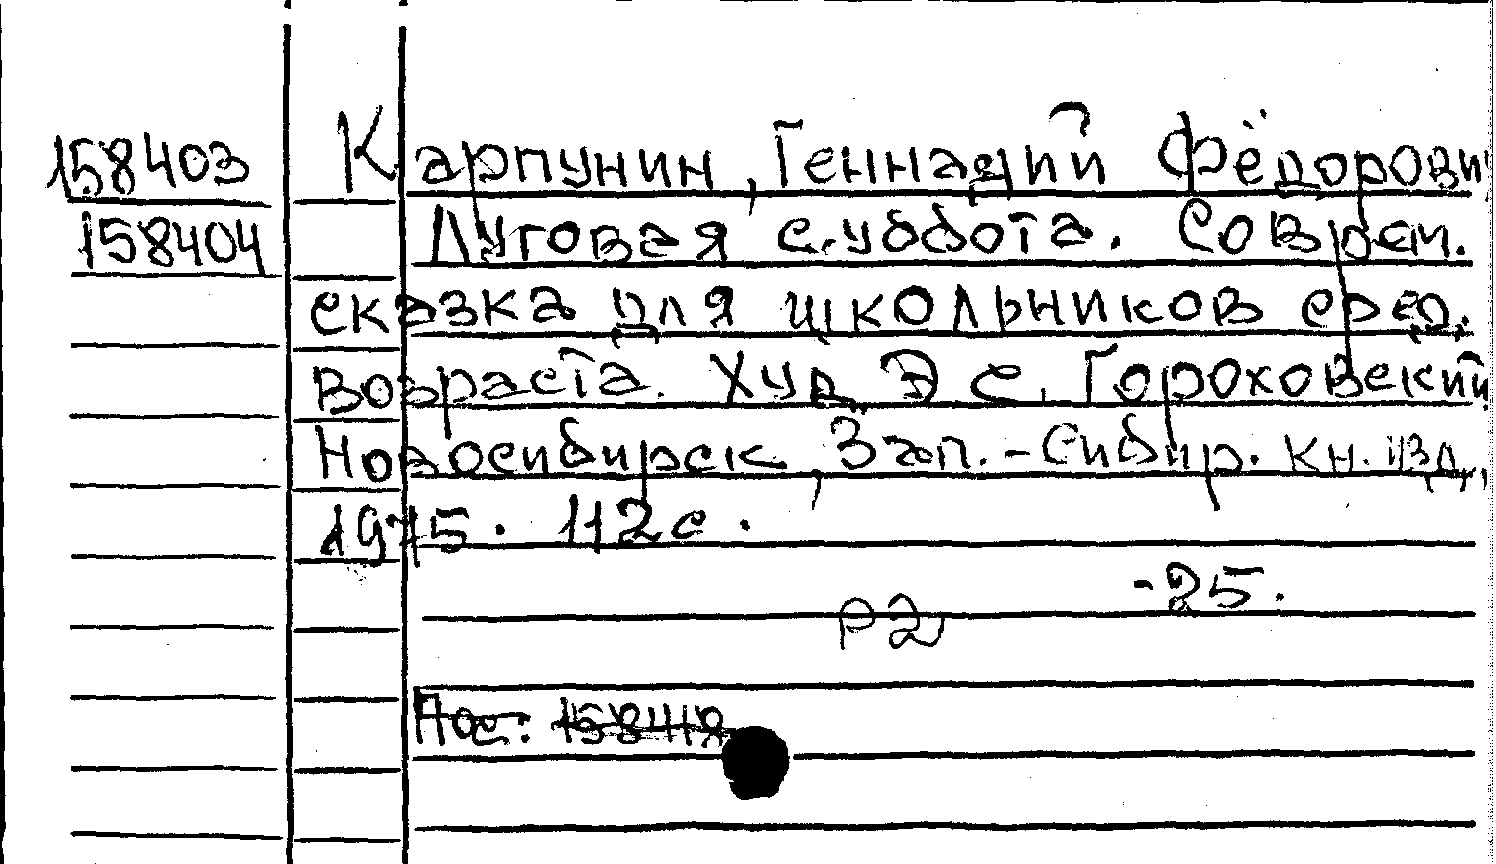 158403 Карпунин, Геннадий Фёдорови
158404 Луговая суббота. Соврем.
сказка для школьников сред.
возраста. Худ. Э. С. Гороховский
Новосибирск, Зап.-Сибир. кн. изд.,
1975. 112 с.
-25.
Р2
Пос: 158418